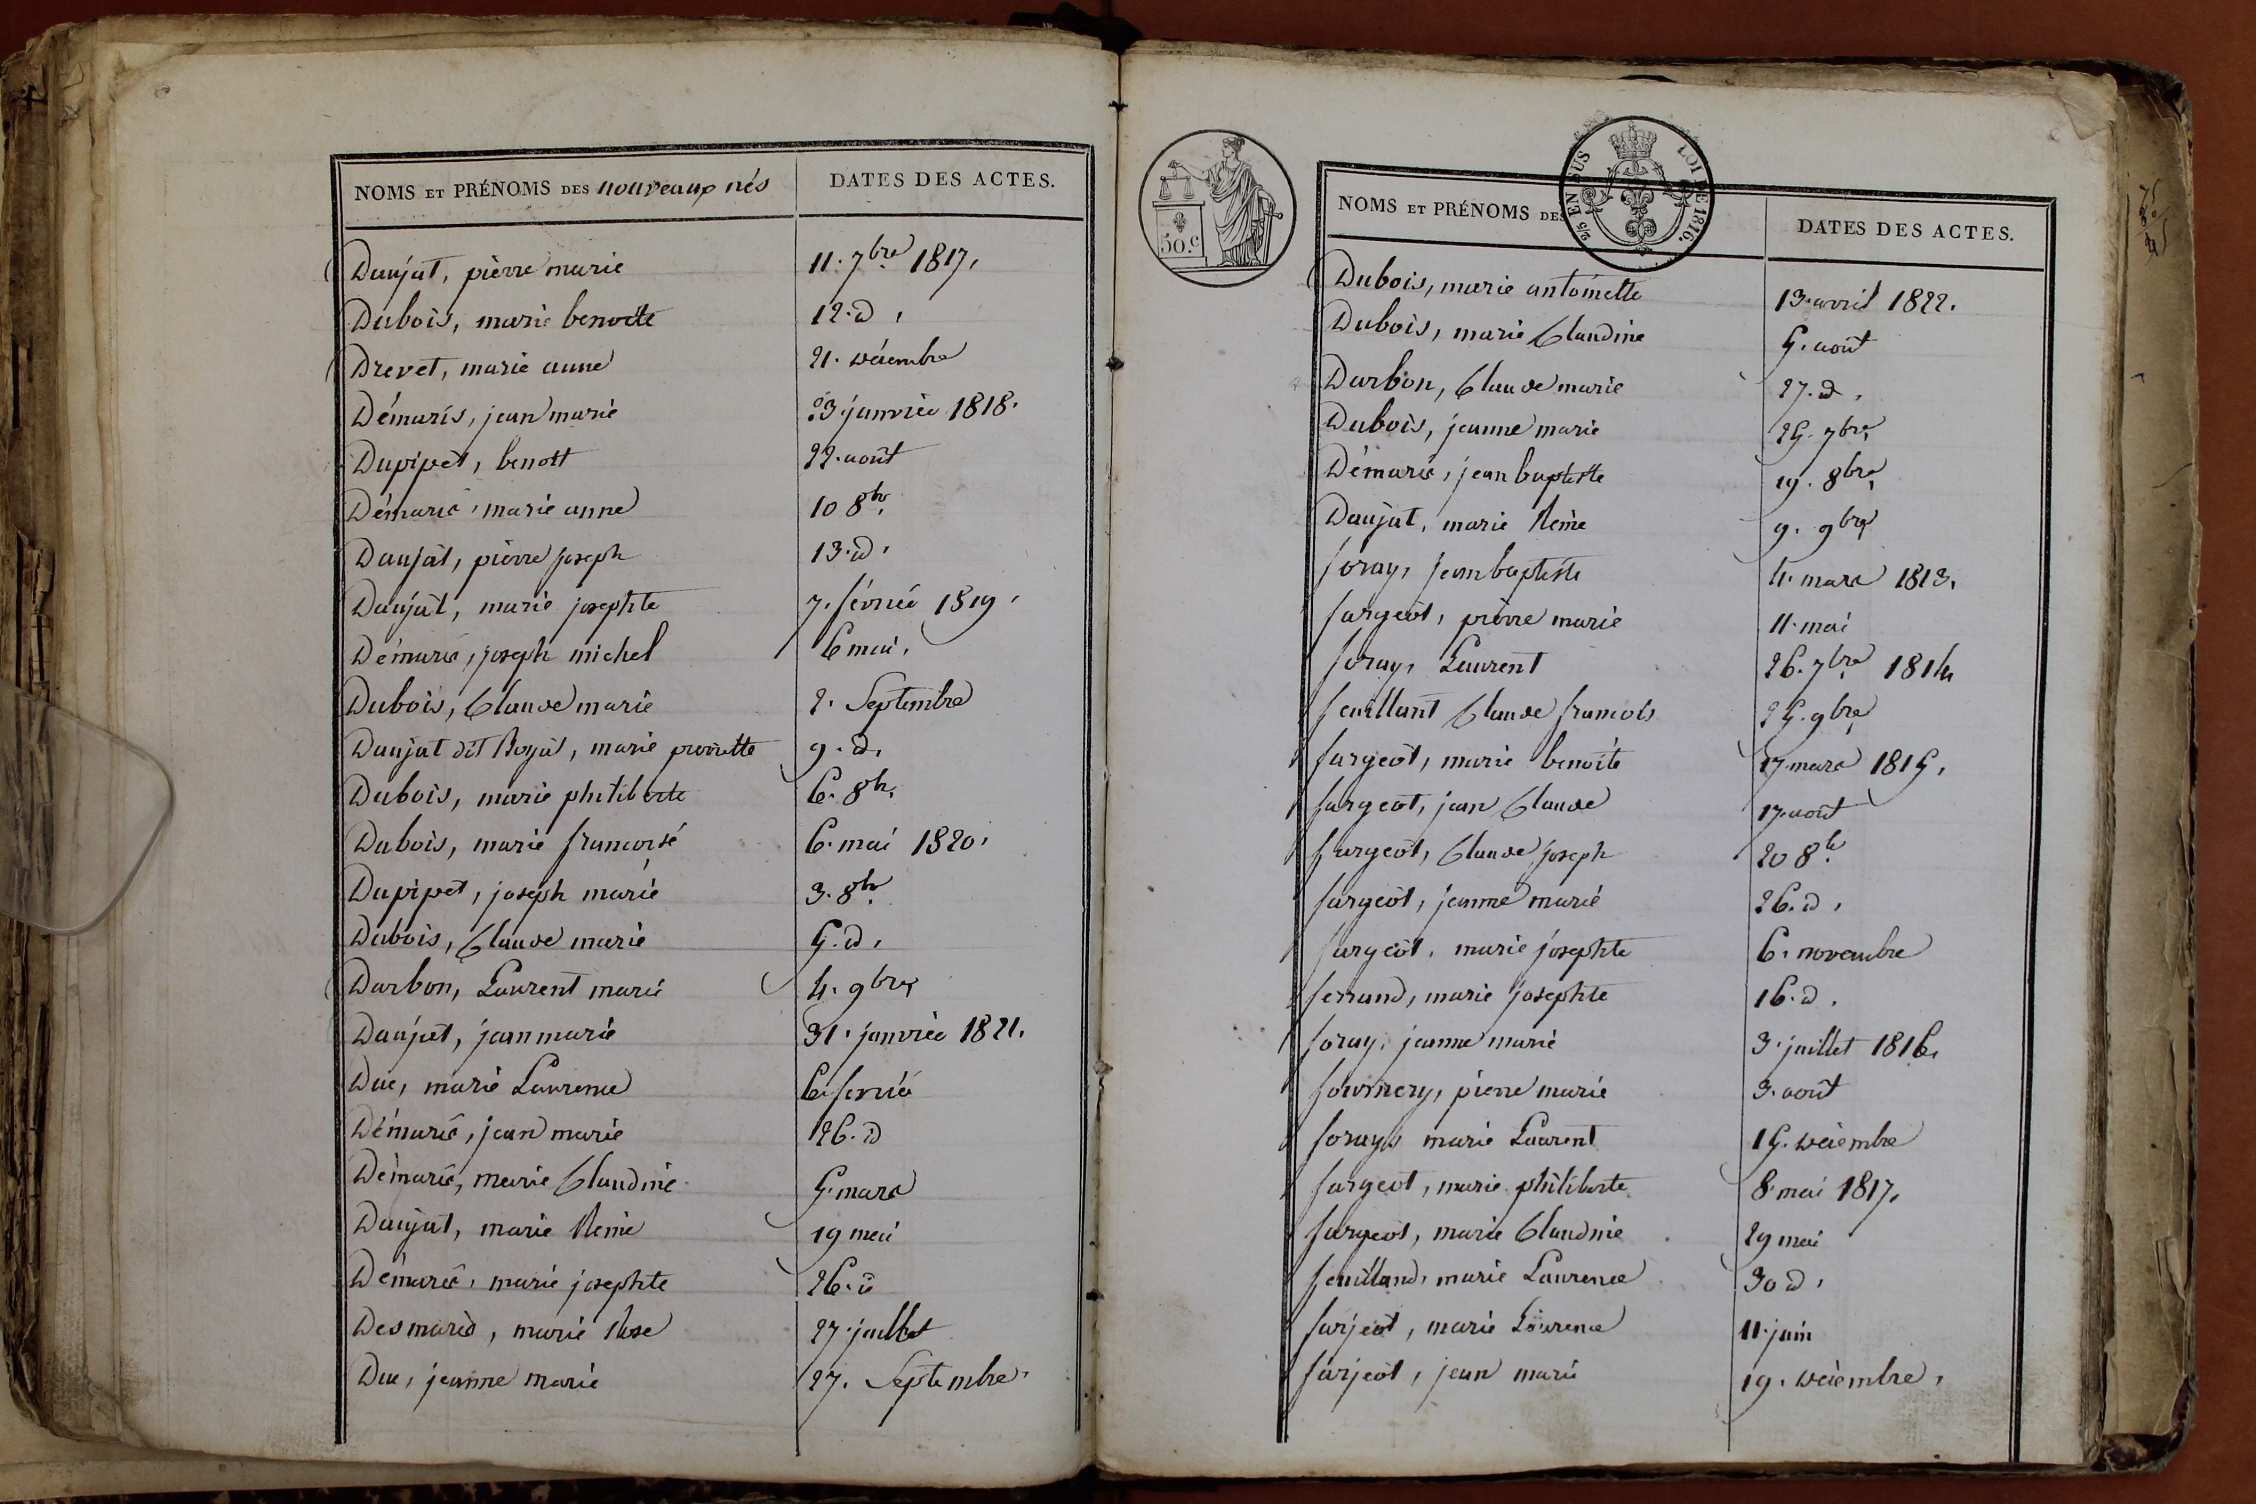 NOMS ET PRÉNOMS DES nouveaux nés DATES DES ACTES.
Daujat, pierre marie 11. 7bre 1817.
Dubois, marie benoite 12. d.
Drevet, marie anne 21. décembre
Démaris, jean marie 23 janvier 1818.
Dupipet, benoit 22. août
Démaris, marie anne 10 8bre.
Daujat, pierre joseph 13. d.
Daujat, marie josephte 7. février 1819.
Démaris, joseph michel 6 mai.
Dubois, Claude marie 2. Septembre
Daujat dit Boyat, marie pierrette 9. d.
Dubois, marie philiberte 6. 8bre.
Dubois, marie francoise 6. mai 1820.
Dupipet, joseph marie 3. 8bre.
Dubois, Claude marie 5. d.
Darbon, Laurent marie 4. 9bre.
Daujat, jean marie 31. janvier 1821.
Duc, marie Laurence 6. février
Démaris, jean marie 26. d
Démaris, marie Claudine 5. mars
Daujat, marie Reine 19 mai
Démaris, marie josephte 26. d
Desmaris, marie Rose 27. juillet
Duc, jeanne marie 27. Septembre.
50.c
25 EN SUS LOI DE 1816.
NOMS ET PRÉNOMS DES DATES DES ACTES.
Dubois, marie antoinette 13. avril 1822.
Dubois, marie Claudine 5. août
Darbon, Claude marie 27. d.
Dubois, jeanne marie 25. 7bre.
Démaris, jean baptiste 19. 8bre.
Daujat, marie Reine 9. 9bre
foray, jean baptiste 4. mars 1813.
fargeot, pierre marie 11. mai
foray, Laurent 26. 7bre 1814
feuillant Claude francois 25. 9bre
fargeot, marie benoite 17. mars 1815.
fargeot, jean Claude 17. août
fargeot, Claude joseph 20 8bre.
fargeot, jeanne marie 26. d.
fargeot, marie josephte 6. novembre
ferrand, marie josephte 16. d.
foray, jeanne marie 3. juillet 1816.
fournery, pierre marie 3. août
foray, marie Laurent 15. décembre
fargeot, marie philiberte 8. mai 1817.
fargeot, marie Claudine 29 mai
feuilland, marie Laurence 30 d.
farjeot, marie Laurence 11. juin
farjeot, jean marie 19. décembre.